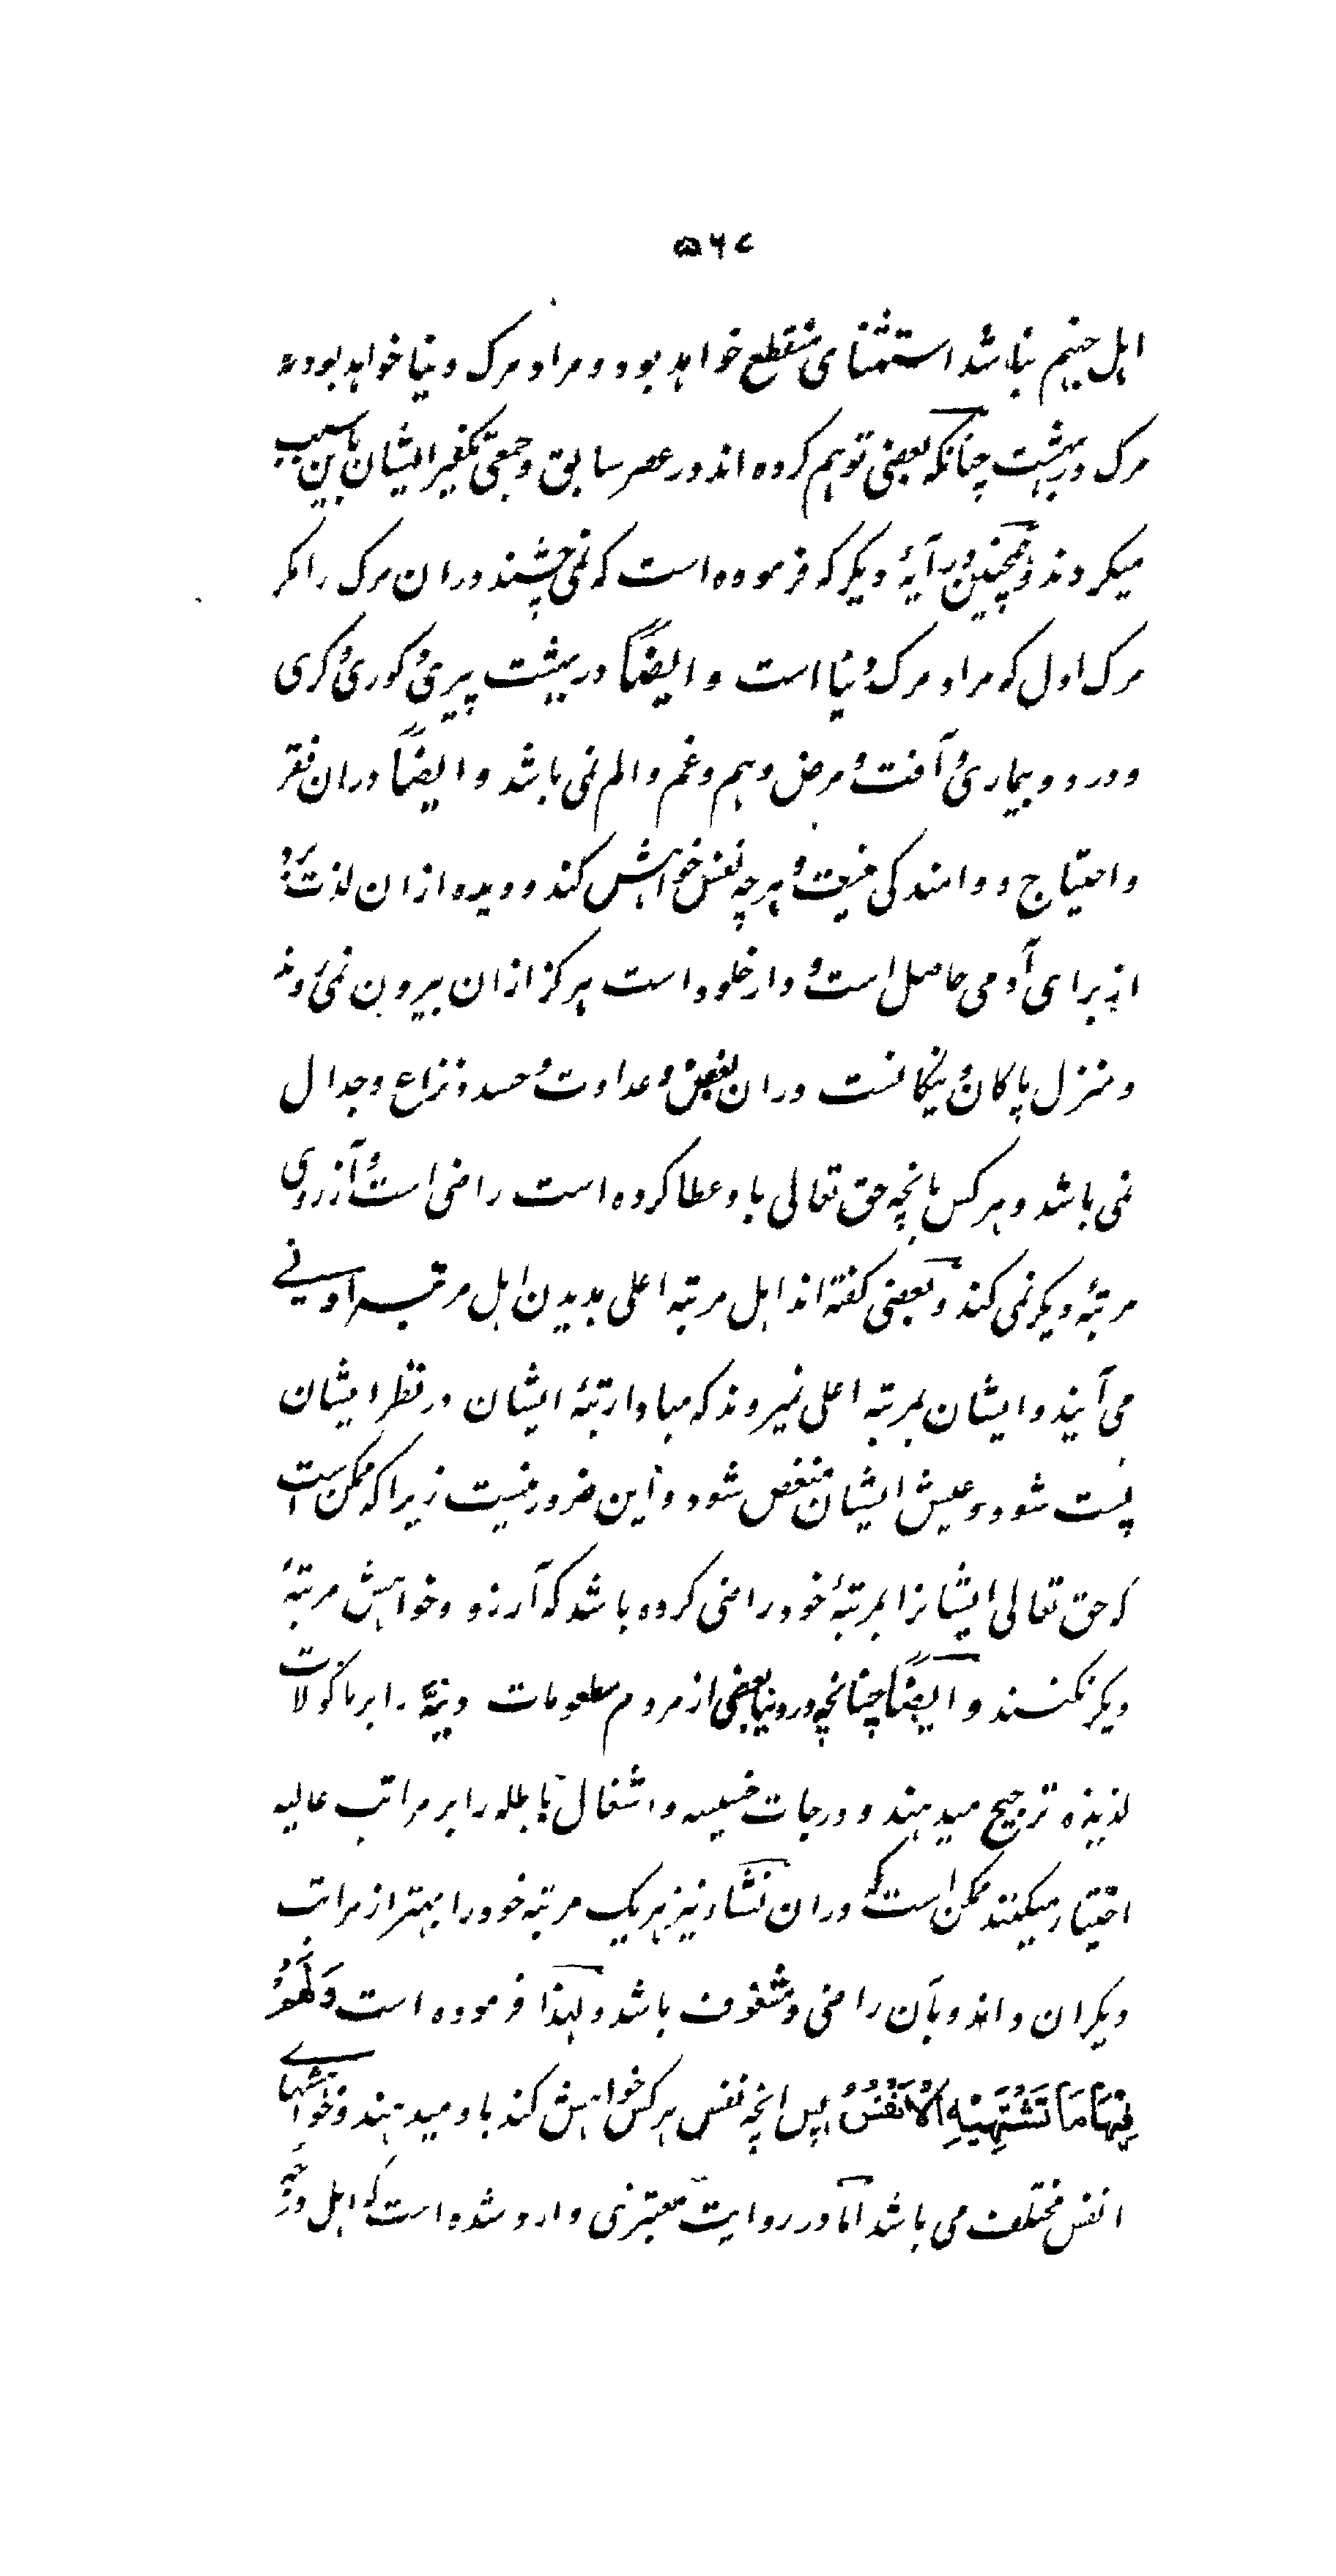 ۵۶۷
اهل جهنم نباشد استثنای منقطع خواهد بود و مراد مرک دنیا خواهد بود نه
مرک در بهشت چنانکه بعضی توهم کرده اند در عصر سابق و جمعی تکفیر ایشان باین سبب
میکردند و همچنین در آیۀ دیکر که فرموده است که نمی چشند در ان مرک را مکر
مرک اول که مراد مرک دنیا است و ایضاً در بهشت پیری و کوری و کری
و درد و بیماری و آفت و مرض و هم و غم و الم نمی باشد و ایضاً دران فقر
و احتیاج و وامندکی نیست و هرچه نفس خواهش کند و دیده ازان لذت برد
از برای آدمی حاصل است و دار خلود است هرکز ازان بیرون نمی روند
و منزل پاکان و نیکانست دران بغض و عداوت و حسد و نزاع و جدال
نمی باشد و هر کس بانچه حق تعالی باو عطا کرده است راضی است و آرزوی
مرتبۀ دیکر نمی کند و بعضی کفته اند اهل مرتبه اعلی بدیدن اهل مرتبه ادنی
می آیند و ایشان بمرتبه اعلی نمیروند که مبادا رتبۀ ایشان در نظر ایشان
پست شود و عیش ایشان منغص شود و این ضرور نیست زیرا که ممکن است
که حق تعالی ایشانرا بمرتبۀ خود راضی کرده باشد که آرزو و خواهش مرتبۀ
دیکر نکنند و ایضاً چنانچه در دنیا بعضی از مردم مطعومات دنیّه را بر ماکولات
لذیذه ترجیح میدهند و درجات خسیسه و اشغال باطله را بر مراتب عالیه
اختیار میکنند ممکن است که دران نشاء نیز هریک مرتبه خود را بهتر از مراتب
دیکران داند و بآن راضی و مشغوف باشد و لهذا فرموده است وَلَهُمْ
فِیْهَا مَا تَشْتَهِیْهِ الْاَنْفُسُ پس انچه نفس هرکس خواهش کند باو میدهند و خواهشهای
انفس مختلف می باشد امّا در روایت معتبری وارد شده است که اهل درجه